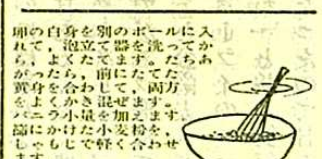 卵の白身を別のボールに入
れて，泡立て器を洗ってか
ら，よくたてます。たちあ
がったら，前にたてた
黄身を合わして，両方
をよくかき混ぜます。
バニラ小量を加えます。
篩にかけた小麦粉を，
しゃもじで軽く合わせ
ます